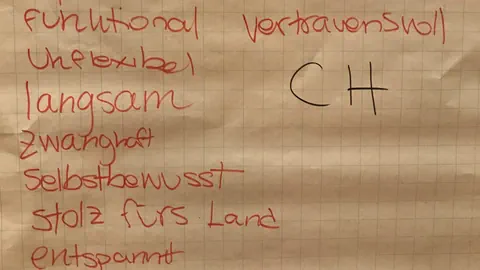 funktional
unflexibel
langsam
zwanghaft
selbstbewusst
stolz fürs Land
entspannt
vertrauensvoll
CH